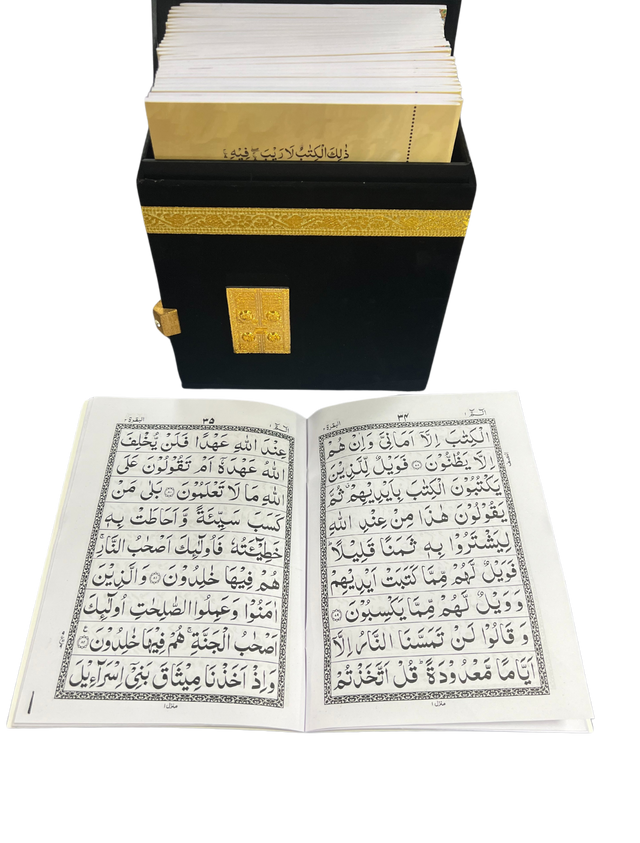 ذٰلِكَ الْكِتٰبُ لَا رَيْبَ ۛ فِيْهِ ۛ
٣٤
الْكِتٰبَ اِلَّاۤ اَمَانِیَّ وَاِنْ هُمْ
اِلَّا یَظُنُّوْنَ ۝ فَوَیْلٌ لِّلَّذِیْنَ
یَكْتُبُوْنَ الْكِتٰبَ بِاَیْدِیْهِمْ ۗ ثُمَّ
یَقُوْلُوْنَ هٰذَا مِنْ عِنْدِ اللّٰهِ
لِیَشْتَرُوْا بِهٖ ثَمَنًا قَلِیْلًا ؕ
فَوَیْلٌ لَّهُمْ مِّمَّا كَتَبَتْ اَیْدِیْهِمْ
وَ وَیْلٌ لَّهُمْ مِّمَّا یَكْسِبُوْنَ ۝
وَ قَالُوْا لَنْ تَمَسَّنَا النَّارُ اِلَّاۤ
اَیَّامًا مَّعْدُوْدَةً ؕ قُلْ اَتَّخَذْتُمْ
منزل ١
البقرة ٢
٣٥
عِنْدَ اللّٰهِ عَهْدًا فَلَنْ یُّخْلِفَ
اللّٰهُ عَهْدَهٗۤ اَمْ تَقُوْلُوْنَ عَلَی
اللّٰهِ مَا لَا تَعْلَمُوْنَ ۝ بَلٰی مَنْ
كَسَبَ سَیِّئَةً وَّ اَحَاطَتْ بِهٖ
خَطِیْٓـَٔتُهٗ فَاُولٰٓىِٕكَ اَصْحٰبُ النَّارِ ۚ
هُمْ فِیْهَا خٰلِدُوْنَ ۝ وَالَّذِیْنَ
اٰمَنُوْا وَعَمِلُوا الصّٰلِحٰتِ اُولٰٓىِٕكَ
اَصْحٰبُ الْجَنَّةِ ۚ هُمْ فِیْهَا خٰلِدُوْنَ ۝
وَاِذْ اَخَذْنَا مِیْثَاقَ بَنِیْۤ اِسْرَآءِیْلَ
منزل ١